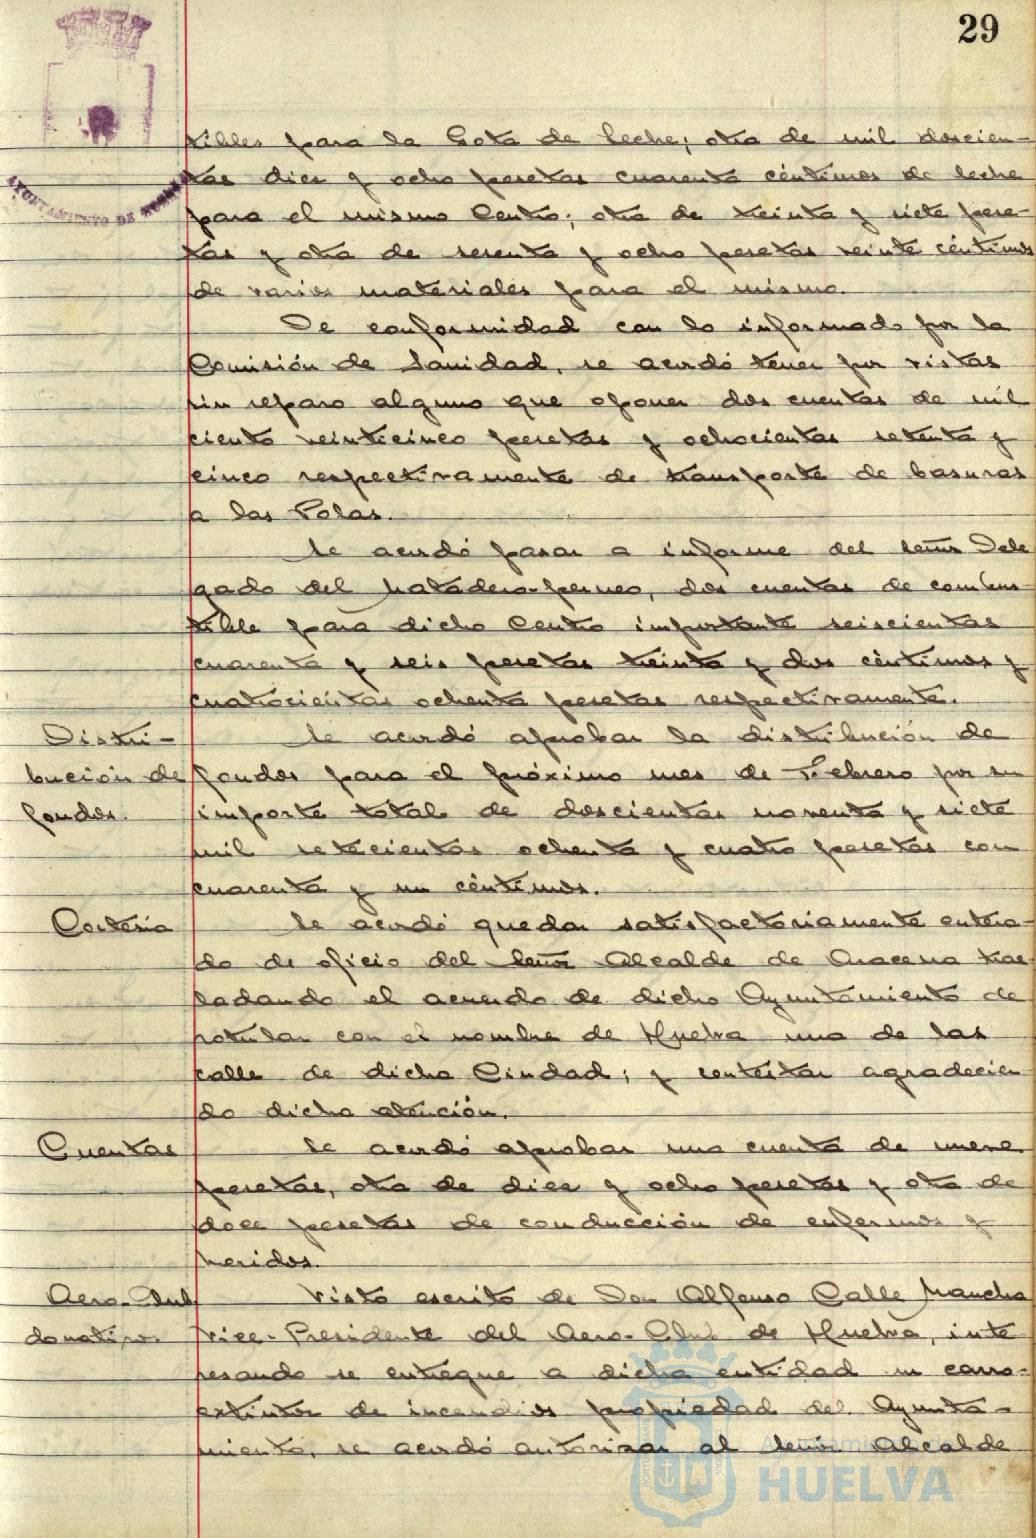 29
AYUNTAMIENTO DE HUELVA
tibles para la Gota de Leche; otra de mil doscien-
tas diez y ocho pesetas cuarenta céntimos de leche
para el mismo Centro; otra de treinta y siete pese-
tas y otra de sesenta y ocho pesetas veinte céntimos
de varios materiales para el mismo.
De conformidad con lo informado por la
Comisión de Sanidad, se acordó tener por vistas
sin reparo alguno que oponer dos cuentas de mil
ciento veinticinco pesetas y ochocientas setenta y
cinco respectivamente de transporte de basuras
a las Polas.
Se acordó pasar a informe del señor Dele
gado del Matadero, dos cuentas de combus
tible para dicho Centro importante seiscientas
cuarenta y seis pesetas treinta y dos céntimos y
cuatrocientas ochenta pesetas respectivamente.
Distri-
bución de
fondos.
Se acordó aprobar la distribución de
fondos para el próximo mes de Febrero por su
importe total de doscientas noventa y siete
mil setecientas ochenta y cuatro pesetas con
cuarenta y un céntimos.
Cortesia
Se acordó quedar satisfactoriamente entera-
do de oficio del Señor Alcalde de Aracena tras
ladando el acuerdo de dicho Ayuntamiento de
rotular con el nombre de Huelva una de las
calle de dicha Ciudad; y contestar agradecien
do dicha atención.
Cuentas
Se acordó aprobar una cuenta de nueve
pesetas, otra de diez y ocho pesetas y otra de
doce pesetas de conducción de enfermos y
heridos.
Aero-Club
donativo
Visto escrito de Don Alfonso Calle Mancha
Vice-Presidente del Aero-Club de Huelva, inte
resando se entregue a dicha entidad un carro-
extintor de incendios propiedad del Ayunta-
miento, se acordó autorizar al señor Alcalde
Ayuntamiento de
HUELVA